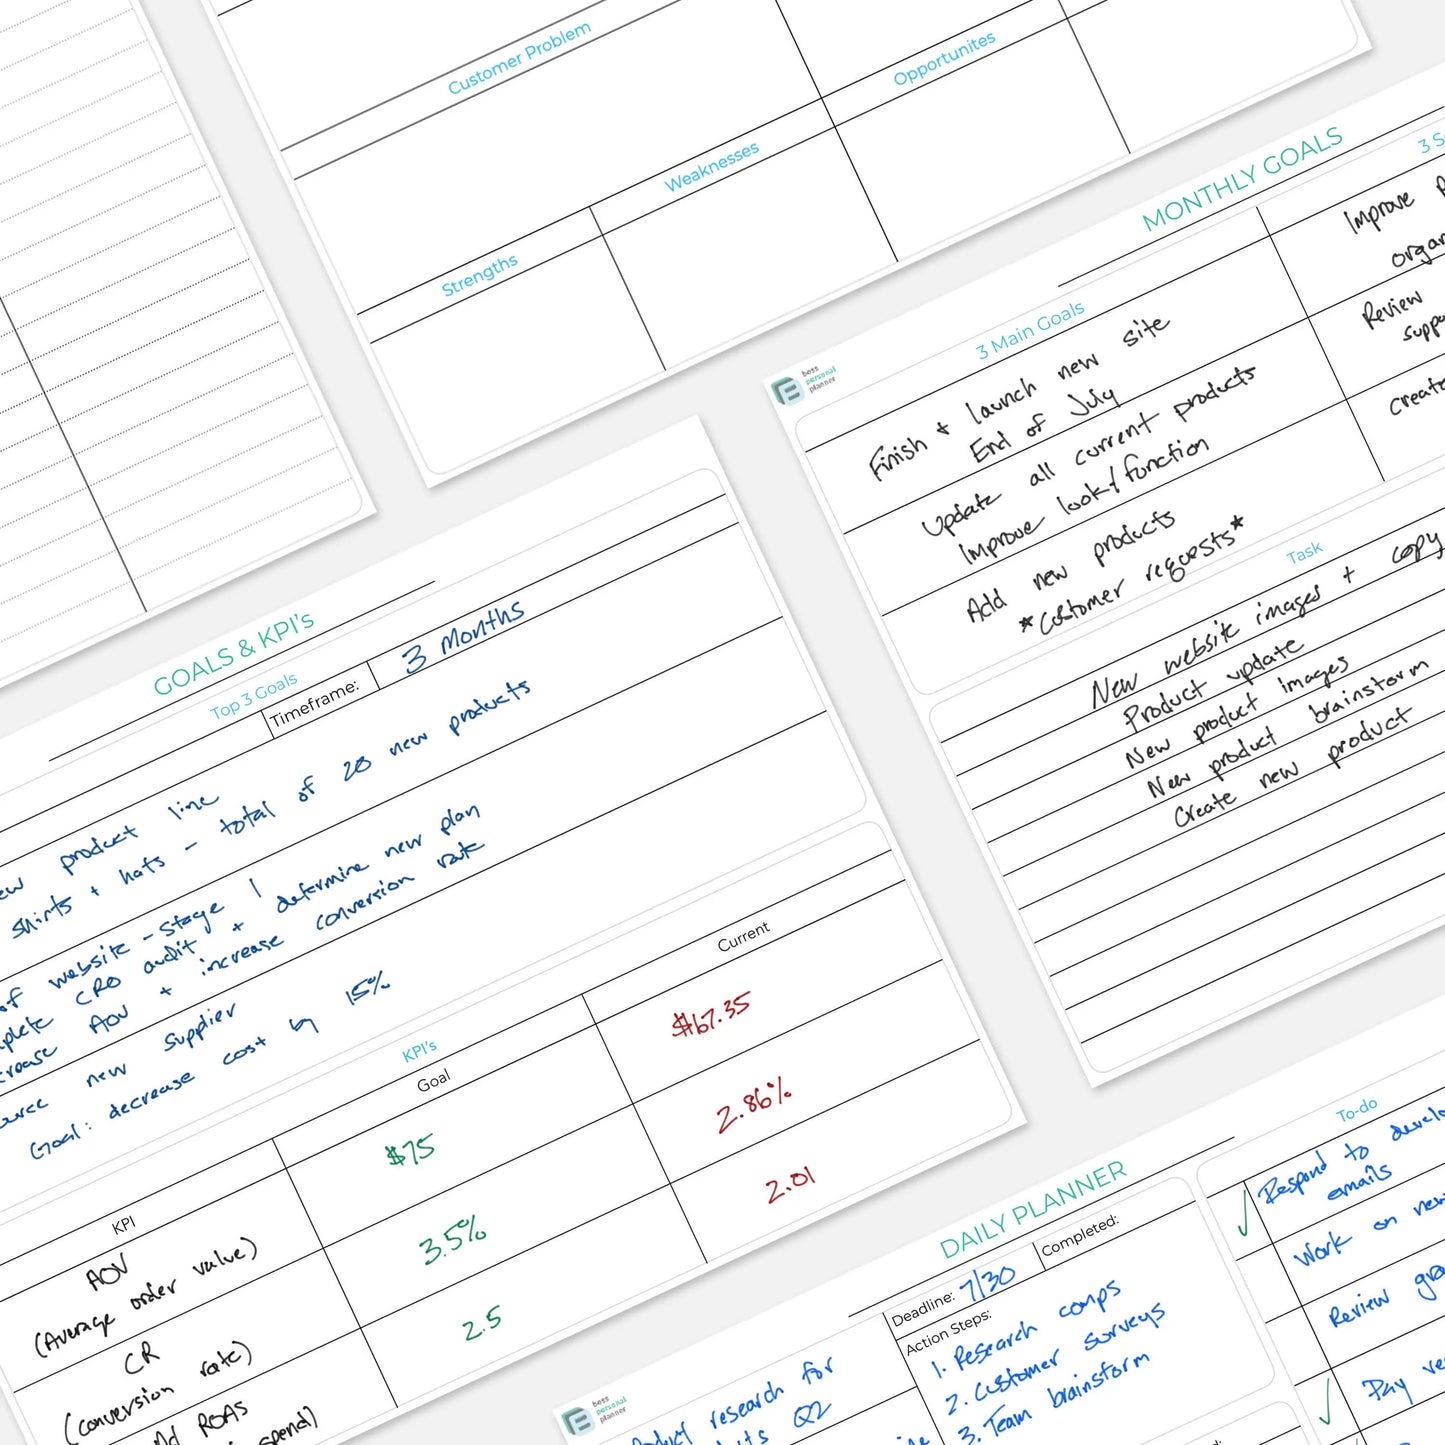 Customer Problem
Opportunites
Weaknesses
Strengths
MONTHLY GOALS
3 Main Goals
boss
personal
planner
Finish + launch new site
End of July
Update all current products
Improve look/function
Add new products
*Customer requests*
Improve
Review
Create
Task
New website images + copy
Product update
New product images
New product brainstorm
Create new product
GOALS & KPI's
Top 3 Goals
Timeframe: 3 Months
product line
shirts + hats - total of 20 new products
of website - Stage 1
CRO audit + determine new plan
AOV + increase conversion rate
new supplier
Goal: decrease cost by 15%
KPI's
KPI
Goal
Current
AOV
(Average order value)
$75
$67.35
CR
(conversion rate)
3.5%
2.86%
ROAS
spend)
2.5
2.01
DAILY PLANNER
boss
personal
planner
research for
Q2
Deadline: 7/30
Completed:
Action Steps:
1. Research comps
2. Customer surveys
3. Team brainstorm
To-do
Respond to
emails
Work on
Review
Pay